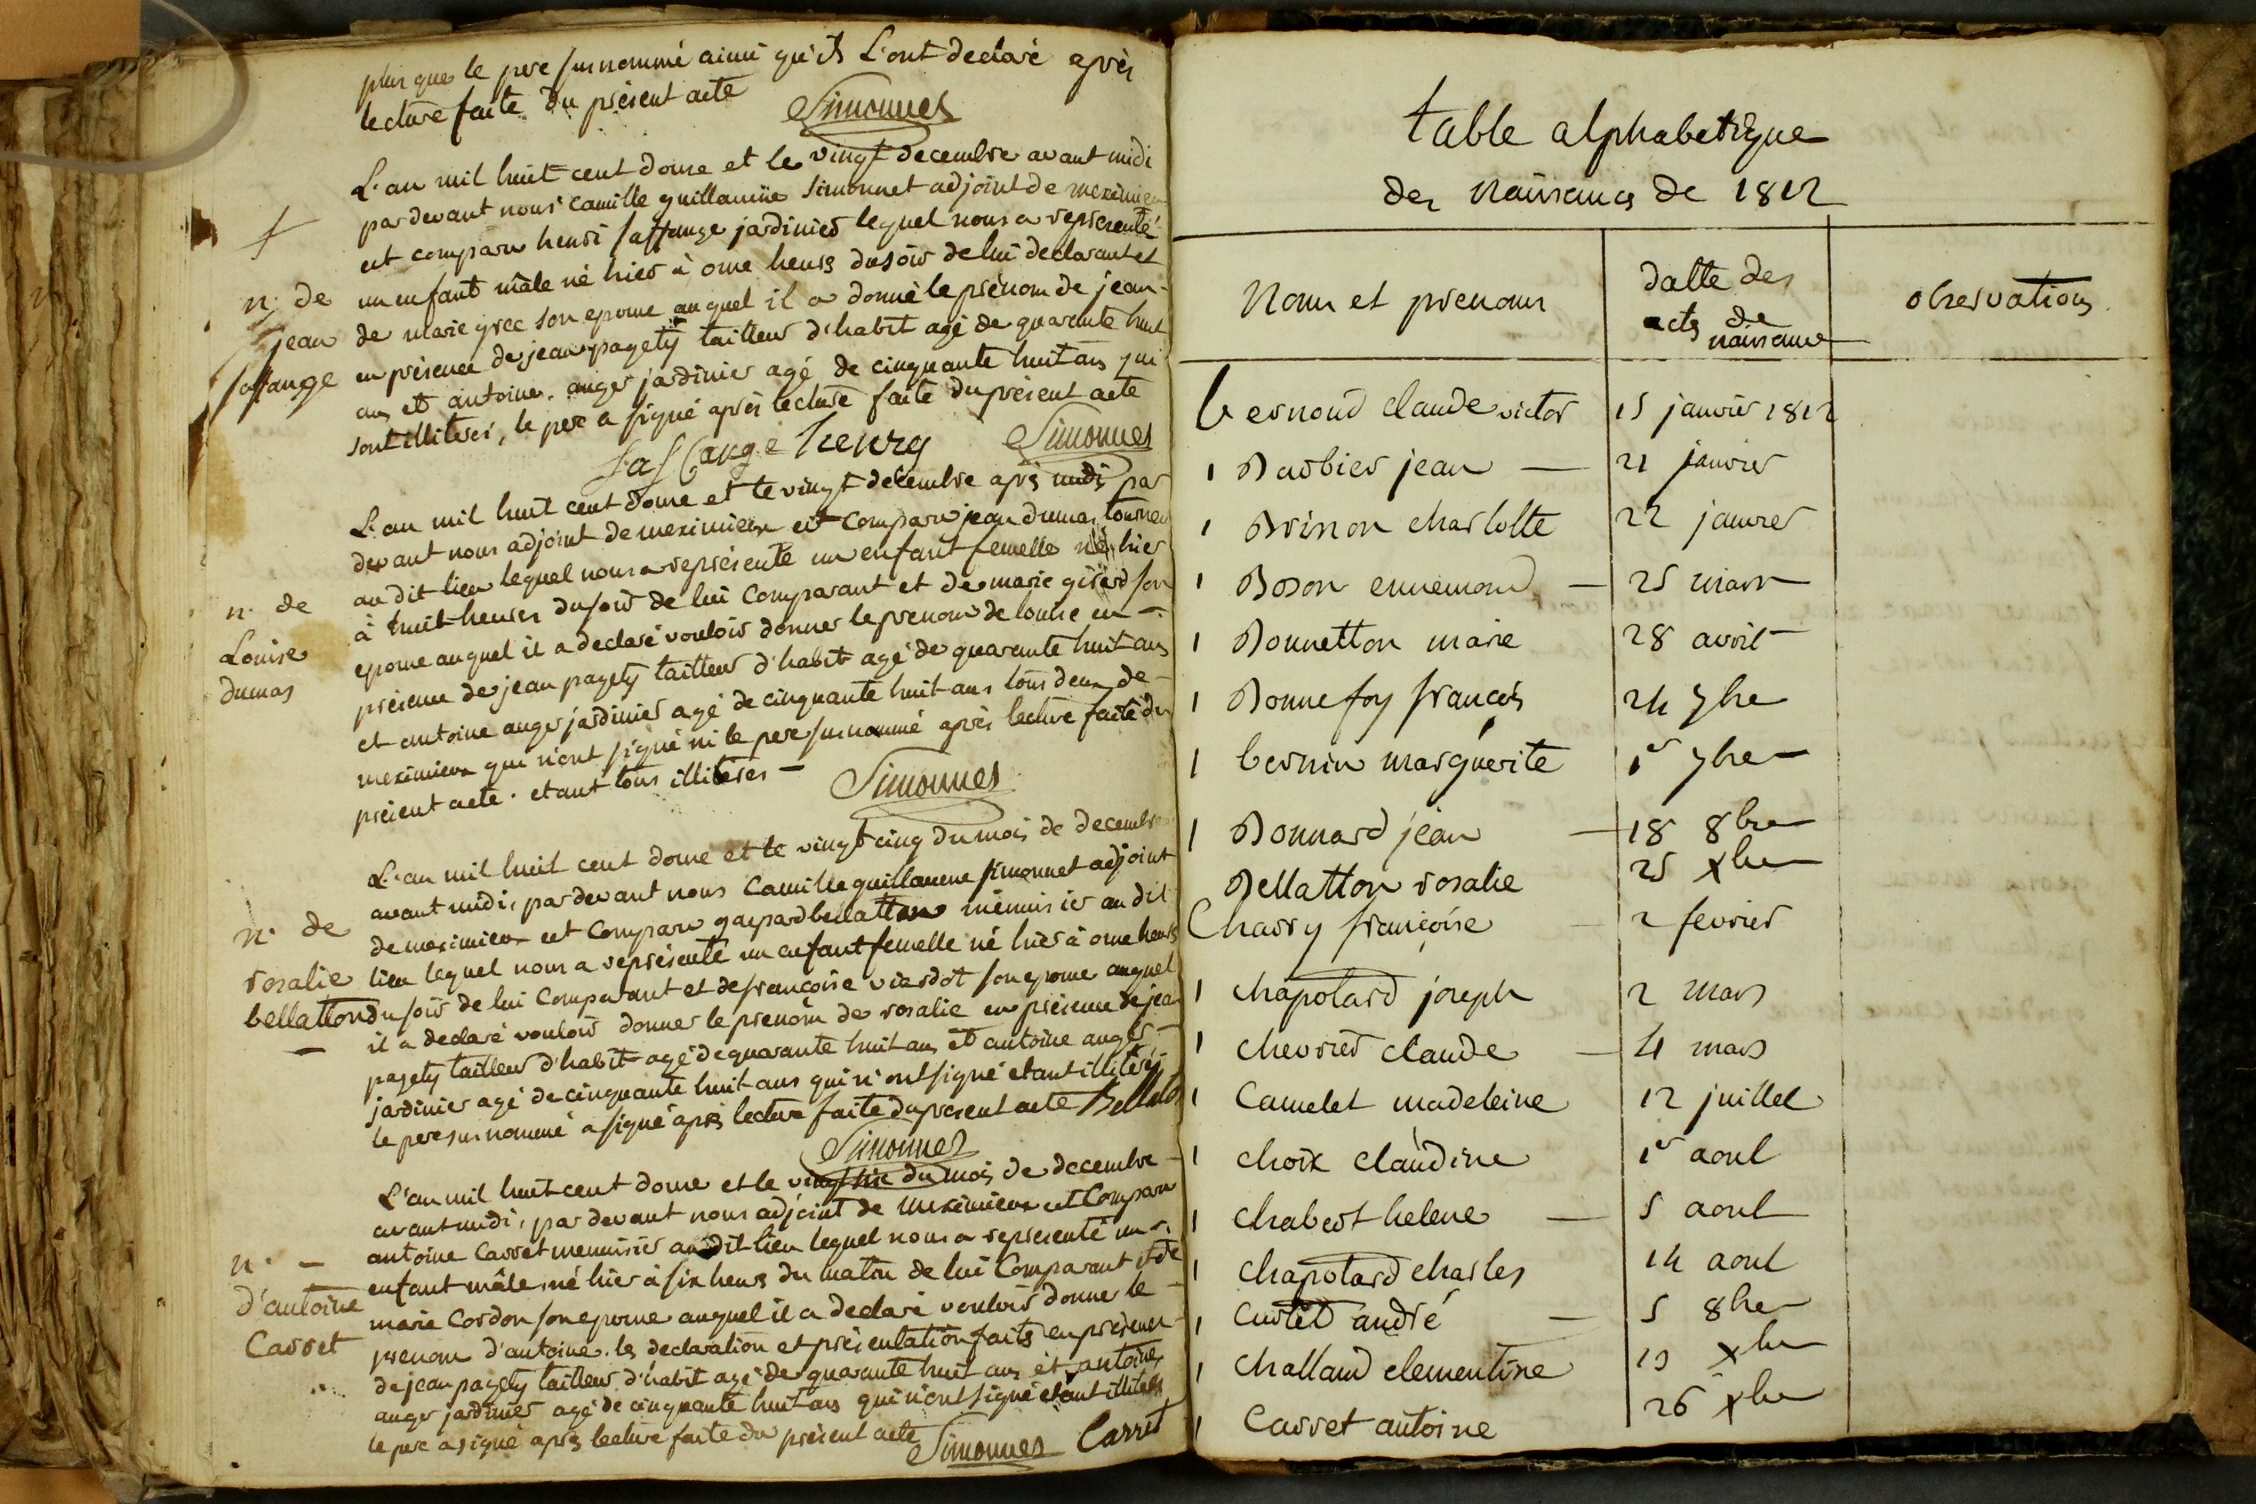 plus que le pere surnommé ainsi qu'ils L'ont declaré après
lecture faite du présent acte
Simonnet
L'an mil huit cent douse et le vingt decembre avant midi
pardevant nous camille guillaume Simonnet adjoint de meximieux
est comparu henri saffange jardinier lequel nous a représenté
un enfant mâle né hier à onse heures du soir de lui declarant et
de marie grec son epouse auquel il a donné le prénom de jean
en présence de jean pagety tailleur d'habit agé de quarante huit
ans et antoine auger jardinier agé de cinquante huit ans qui
sont illiterés, le pere a signé après lecture faite du présent acte
n. de
jean
saffange
Saffange henry Simonnet
L'an mil huit cent douse et le vingt décembre après midi par
devant nous adjoint de meximieux est comparu jean dumas
au dit lieu lequel nous a représenté un enfant femelle né hier
à huit heures du soir de lui comparant et de marie girard son
epouse auquel il a declaré vouloir donner le prenom de louise en
présence de jean pagety tailleur d'habit agé de quarante huit ans
et antoine auger jardinier agé de cinquante huit ans tous deux de
meximieux qui n'ont signé ni le pere surnommé après lecture faite du
présent acte. etant tous illiterés
n. de
Louise
dumas
Simonnet
L'an mil huit cent douse et le vingt cinq du mois de decembre
avant midi, pardevant nous Camille guillaume simonnet adjoint
de meximieux est comparu gaspard bellatton menuisier au dit
lieu lequel nous a représenté un enfant femelle né hier à onse heures
du soir de lui comparant et de françoise viardot son epouse auquel
il a declaré vouloir donner le prénom de rosalie en présence de jean
pagety tailleur d'habit agé de quarante huit ans et antoine auger
jardinier agé de cinquante huit ans qui n'ont signé etant illiterés
le pere surnommé a signé après lecture faite du présent acte Bellaton
n. de
rosalie
bellatton
Simonnet
L'an mil huit cent douse et le vingt six du mois de decembre
avant midi, par devant nous adjoint de meximieux est Comparu
antoine Carret menuisier au dit lieu lequel nous a représenté un
enfant mâle né hier à six heures du matin de lui Comparant et de
marie Cordon son epouse auquel il a declaré vouloir donner le
prenom d'antoine. les declaration et présentation faits en présence
de jean pagety tailleur d'habit agé de quarante huit ans et antoine
auger jardinier agé de cinquante huit ans qui n'ont signé etant illiterés
le pere a signé après lecture faite du présent acte
n.
d'antoine
Carret
Simonnet Carret
table alphabetique
des naissances de 1812
Noms et prenoms
datte des
actes de
naissance
observations
bernoud claude victor 15 janvier 1812
1 Barbier jean 21 janvier
1 Brison charlotte 22 janvier
1 Boson ennemond 25 mars
1 Bonnetton marie 28 avril
1 Bonnefoy francois 24 7bre
1 bernin marguerite 1er 7bre
1 Bonnard jean 18 8bre
Bellatton rosalie 25 xbre
Charry françoise 2 fevrier
1 chapotard joseph 2 mars
1 chevrier claude 4 mars
1 Camelet madeleine 12 juillet
1 choix claudine 1er aout
1 chabert helene 5 aout
1 chapotard charles 14 aout
1 Curtet andré 5 8bre
1 challand clementine 19 xbre
1 Carret antoine 26 xbre